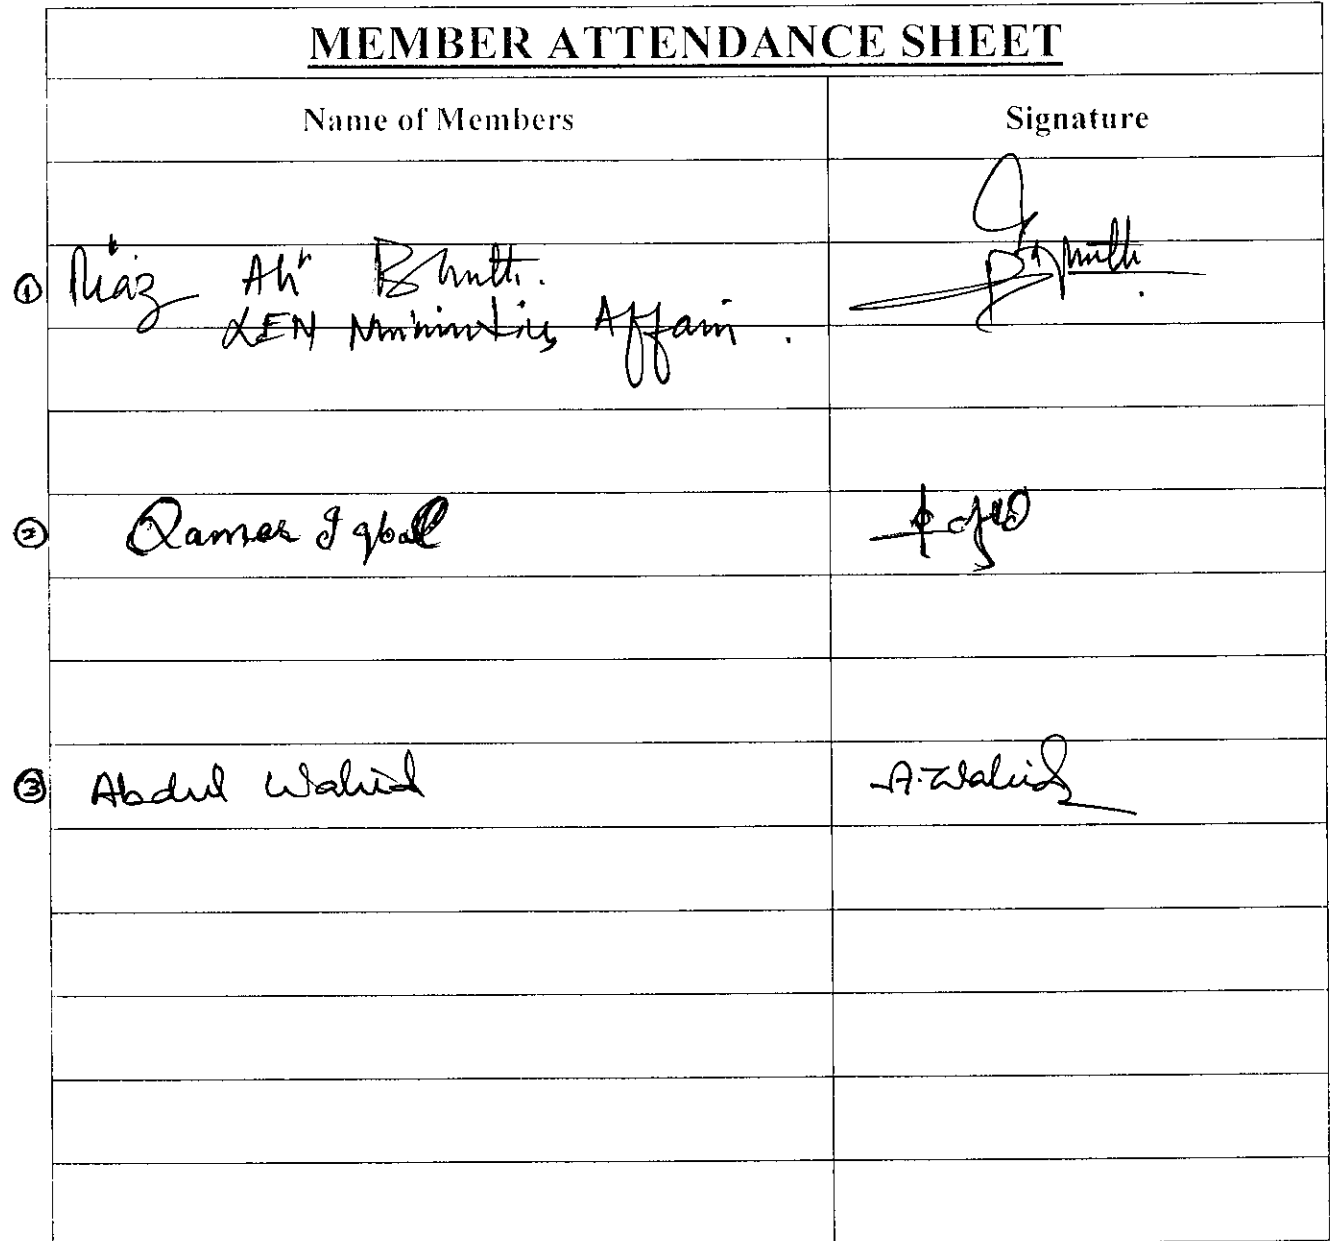 MEMBER ATTENDANCE SHEET
Name of Members Signature
① Riaz Ali Bhutti.
Affair.
② Qamar Iqbal
③ Abdul Wahid A. Wahid